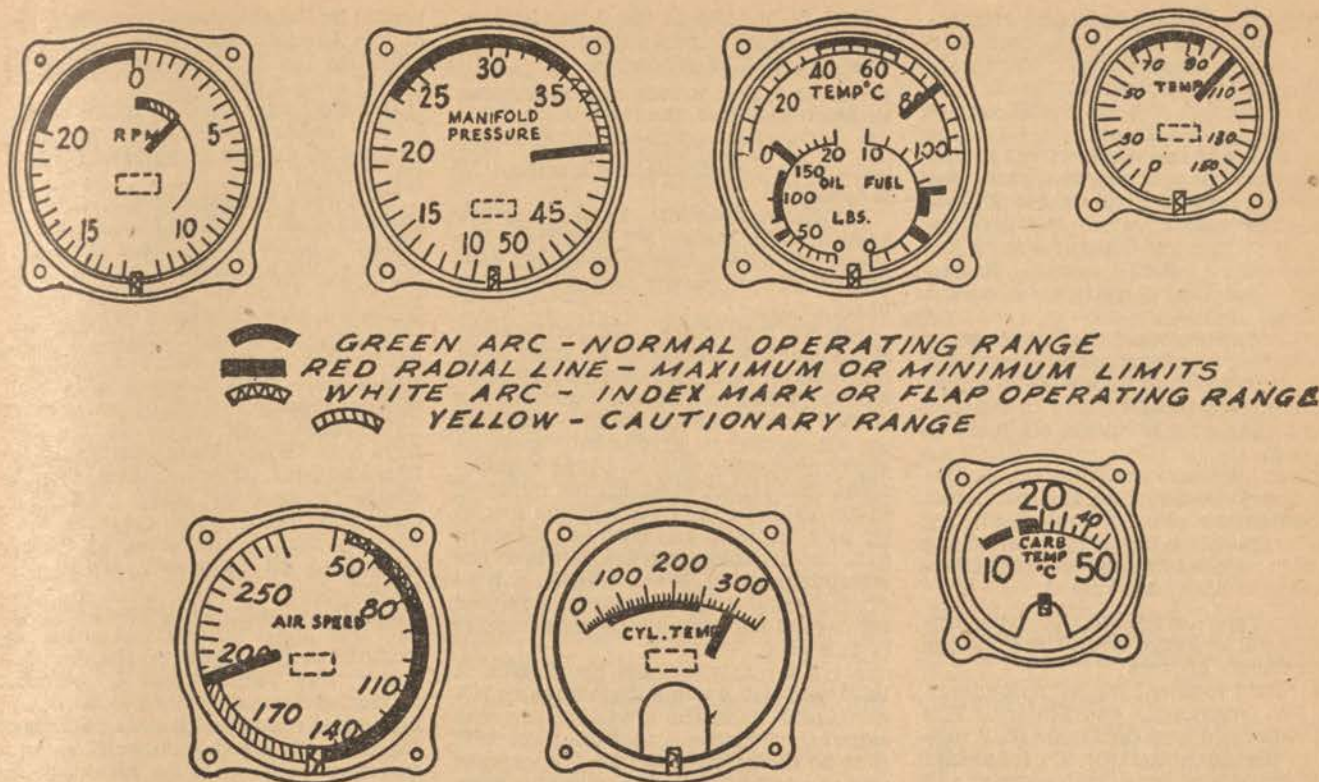 0
5
10
15
20
RPM
10
15
20
25
30
35
45
50
MANIFOLD
PRESSURE
0
20
40
60
80
100
TEMP°C
20
10
150
100
50
0
0
OIL
FUEL
LBS.
0
30
50
70
90
110
130
150
TEMP
GREEN ARC - NORMAL OPERATING RANGE
RED RADIAL LINE - MAXIMUM OR MINIMUM LIMITS
WHITE ARC - INDEX MARK OR FLAP OPERATING RANGE
YELLOW - CAUTIONARY RANGE
50
80
110
140
170
200
250
AIR SPEED
0
100
200
300
CYL. TEMP
20
40
CARB
TEMP
°C
10
50